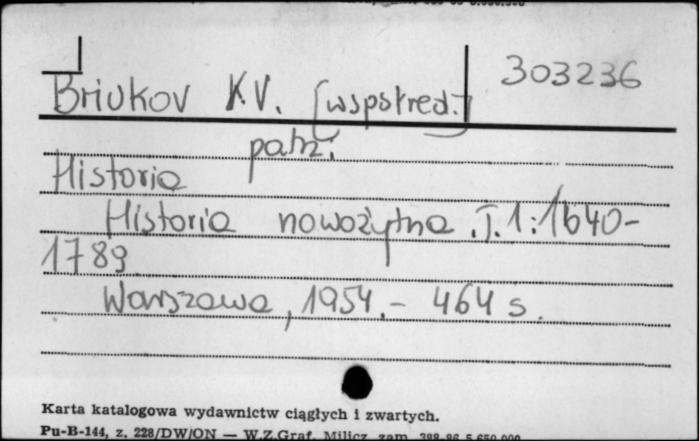 303236
Briukov K.V. [wspstred.]
patrz:
Historia
Historia nowożytna. T.1: 1640-
1789
Warszawa, 1954. - 464 s.
Karta katalogowa wydawnictw ciągłych i zwartych.
Pu-B-144, z. 228/DW/ON — W.Z.Graf. Milicz zam.